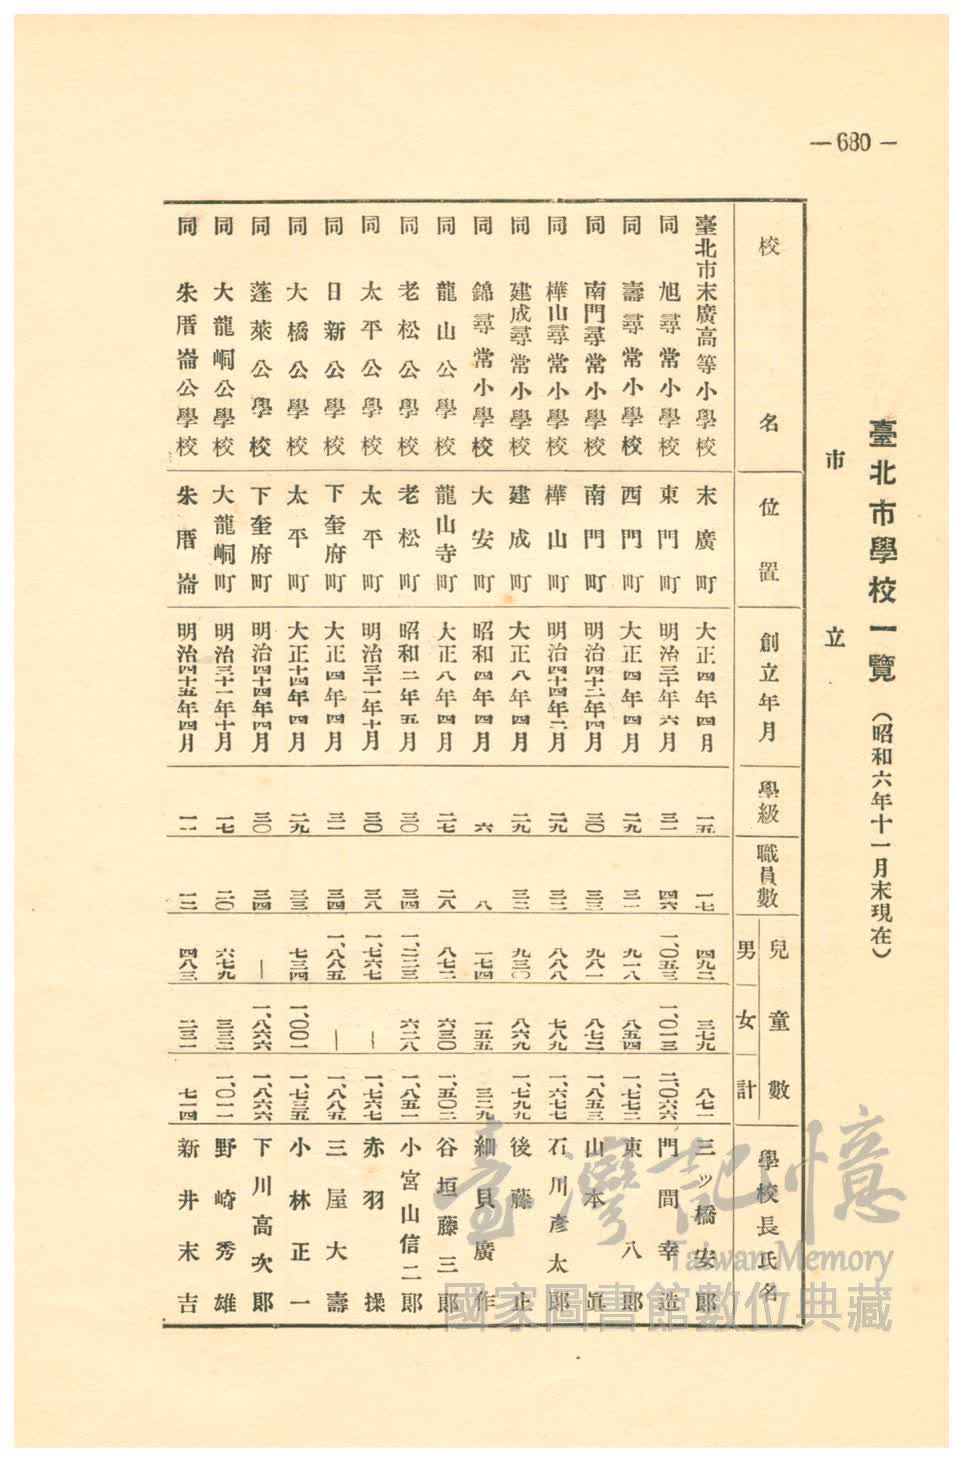 —680—
臺北市學校一覽 (昭和六年十一月末現在)
市立
校名 位置 創立年月 學級 職員數 兒童數 男 女 計 學校長氏名
臺北市末廣高等小學校 末廣町 大正四年四月 一五 一七 四九二 三七九 八七一 三ッ橋安郎
同 旭尋常小學校 東門町 明治三十年六月 三一 四六 一、〇五三 一、〇一三 二、〇六六 門間幸造
同 壽尋常小學校 西門町 大正四年四月 二九 三一 九一八 八五四 一、七七二 東八郎
同 南門尋常小學校 南門町 明治四十二年四月 三〇 三三 九八一 八七二 一、八五三 山本眞
同 樺山尋常小學校 樺山町 明治四十四年二月 二九 三二 八八八 七八九 一、六七七 石川彥太郎
同 建成尋常小學校 建成町 大正八年四月 二九 三二 九三〇 八六九 一、七九九 後藤止
同 錦尋常小學校 大安町 昭和四年四月 六 八 一七四 一五五 三二九 細貝廣作
同 龍山公學校 龍山寺町 大正八年四月 二七 二八 八七二 六三〇 一、五〇二 谷垣藤三郎
同 老松公學校 老松町 昭和二年五月 三〇 三四 一、二二三 六二八 一、八五一 小宮山信二郎
同 太平公學校 太平町 明治三十一年十月 三〇 三八 一、七六七 — 一、七六七 赤羽操
同 日新公學校 下奎府町 大正四年四月 三一 三四 一、八八五 — 一、八八五 三屋大壽
同 大橋公學校 太平町 大正十四年四月 二九 三三 七三四 一、〇〇一 一、七三五 小林正一
同 蓬萊公學校 下奎府町 明治四十四年四月 三〇 三四 — 一、八六六 一、八六六 下川高次郎
同 大龍峒公學校 大龍峒町 明治三十一年十月 一七 二〇 六七九 三三二 一、〇一一 野崎秀雄
同 朱厝崙公學校 朱厝崙 明治四十五年四月 一一 一二 四八三 二三一 七一四 新井末吉
臺灣記憶
Taiwan Memory
國家圖書館數位典藏